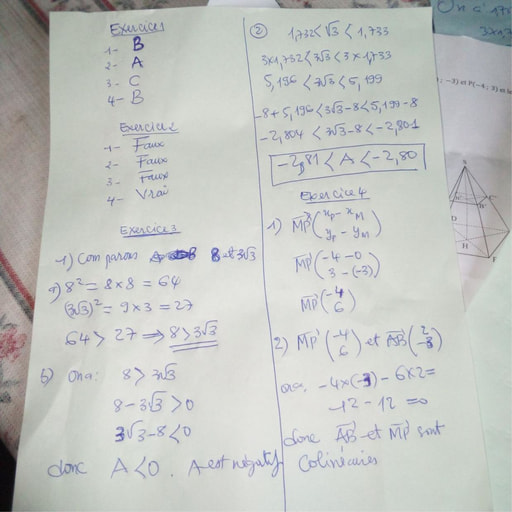 Exercice1
1- B
2- A
3- C
4- B
Exercice2
1- Faux
2- Faux
3- Faux
4- Vrai
Exercice3
1) Comparons 8 et 3√3
a) 8² = 8 x 8 = 64
(3√3)² = 9 x 3 = 27
64 > 27 ⟹ 8 > 3√3
b) Ona: 8 > 3√3
8 - 3√3 > 0
3√3 - 8 < 0
donc A < 0. A est négatif
2) 1,732 < √3 < 1,733
3x1,732 < 3√3 < 3x1,733
5,196 < 3√3 < 5,199
-8 + 5,196 < 3√3 - 8 < 5,199 - 8
-2,804 < 3√3 - 8 < -2,801
-2,81 < A < -2,80
Exercice 4
1) MP (xP - xM
yP - yM)
MP (-4 - 0
3 - (-3))
MP (-4
6)
2) MP (-4
6) et AB (2
-3)
ona: -4x(-3) - 6x2 =
12 - 12 = 0
donc AB et MP sont
Colinéaires
On a
; -3) et P(-4; 3)
S
D
H
F